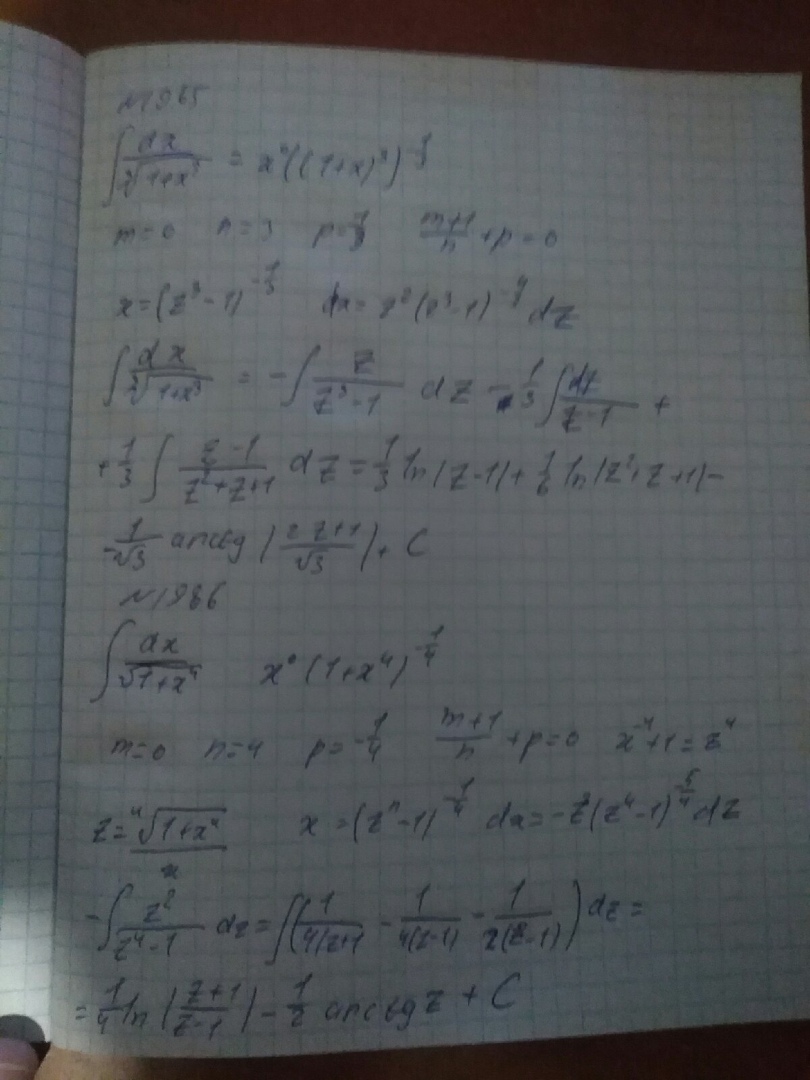 N1985
∫ dx/∛(1+x³) = x⁰((1+x)³)^(-1/3)
m=0 n=3 p=-1/3 (m+1)/n + p = 0
x=(z³-1)^(-1/3) dx= z²(z³-1)^(-4/3) dz
∫ dx/∛(1+x³) = -∫ z/(z³-1) dz - 1/3 ∫ dz/(z-1) +
+ 1/3 ∫ (z-1)/(z²+z+1) dz = 1/3 ln|z-1| + 1/6 ln|z²+z+1| -
- 1/√3 arctg |(2z+1)/√3| + C
N1986
∫ dx/√(1+x⁴) x⁰(1+x⁴)^(-1/4)
m=0 n=4 p=-1/4 (m+1)/n + p = 0 x⁻⁴+1=z⁴
z= ⁴√(1+x⁴)/x x=(z⁴-1)^(-1/4) dx=-z³(z⁴-1)^(-5/4) dz
-∫ z²/(z⁴-1) dz = ∫(1/(4(z+1)) - 1/(4(z-1)) - 1/(2(z²-1))) dz =
= 1/4 ln |(z+1)/(z-1)| - 1/2 arcctg z + C